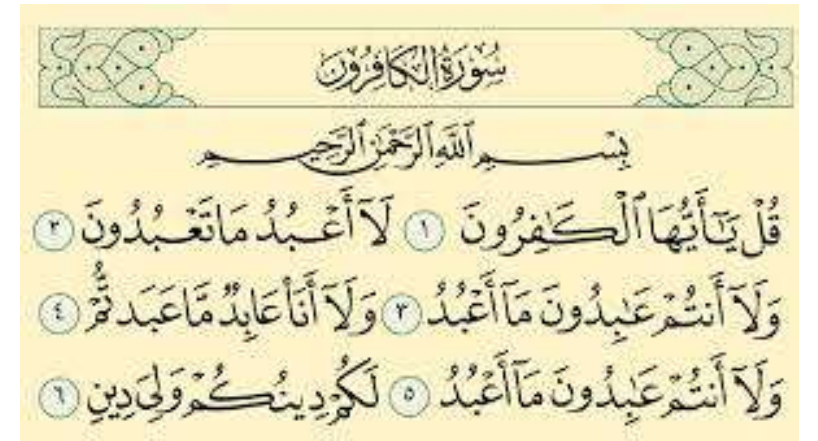 سُورَةُ الكَافِرُونَ
بِسْمِ ٱللَّهِ ٱلرَّحْمَٰنِ ٱلرَّحِيمِ
قُلْ يَـٰٓأَيُّهَا ٱلْكَـٰفِرُونَ ١ لَآ أَعْبُدُ مَا تَعْبُدُونَ ٢
وَلَآ أَنتُمْ عَـٰبِدُونَ مَآ أَعْبُدُ ٣ وَلَآ أَنَا۠ عَابِدٌ مَّا عَبَدتُّمْ ٤
وَلَآ أَنتُمْ عَـٰبِدُونَ مَآ أَعْبُدُ ٥ لَكُمْ دِينُكُمْ وَلِيَ دِينِ ٦